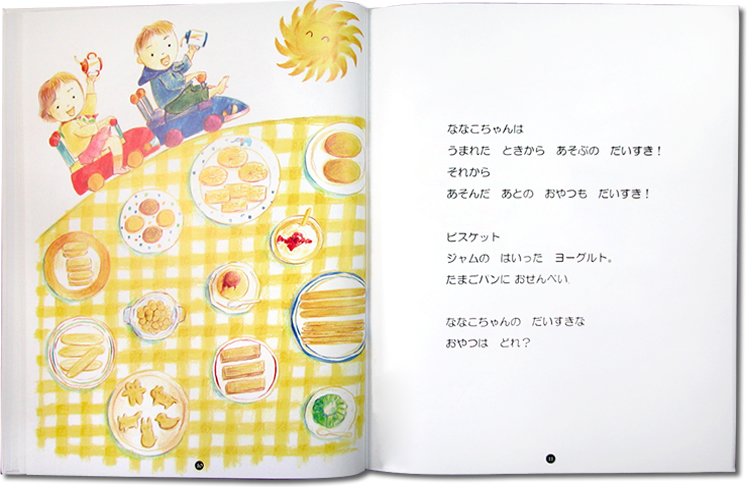 ななこちゃんは
うまれた ときから あそぶの だいすき!
それから
あそんだ あとの おやつも だいすき!
ビスケット
ジャムの はいった ヨーグルト。
たまごパンに おせんべい。
ななこちゃんの だいすきな
おやつは どれ?